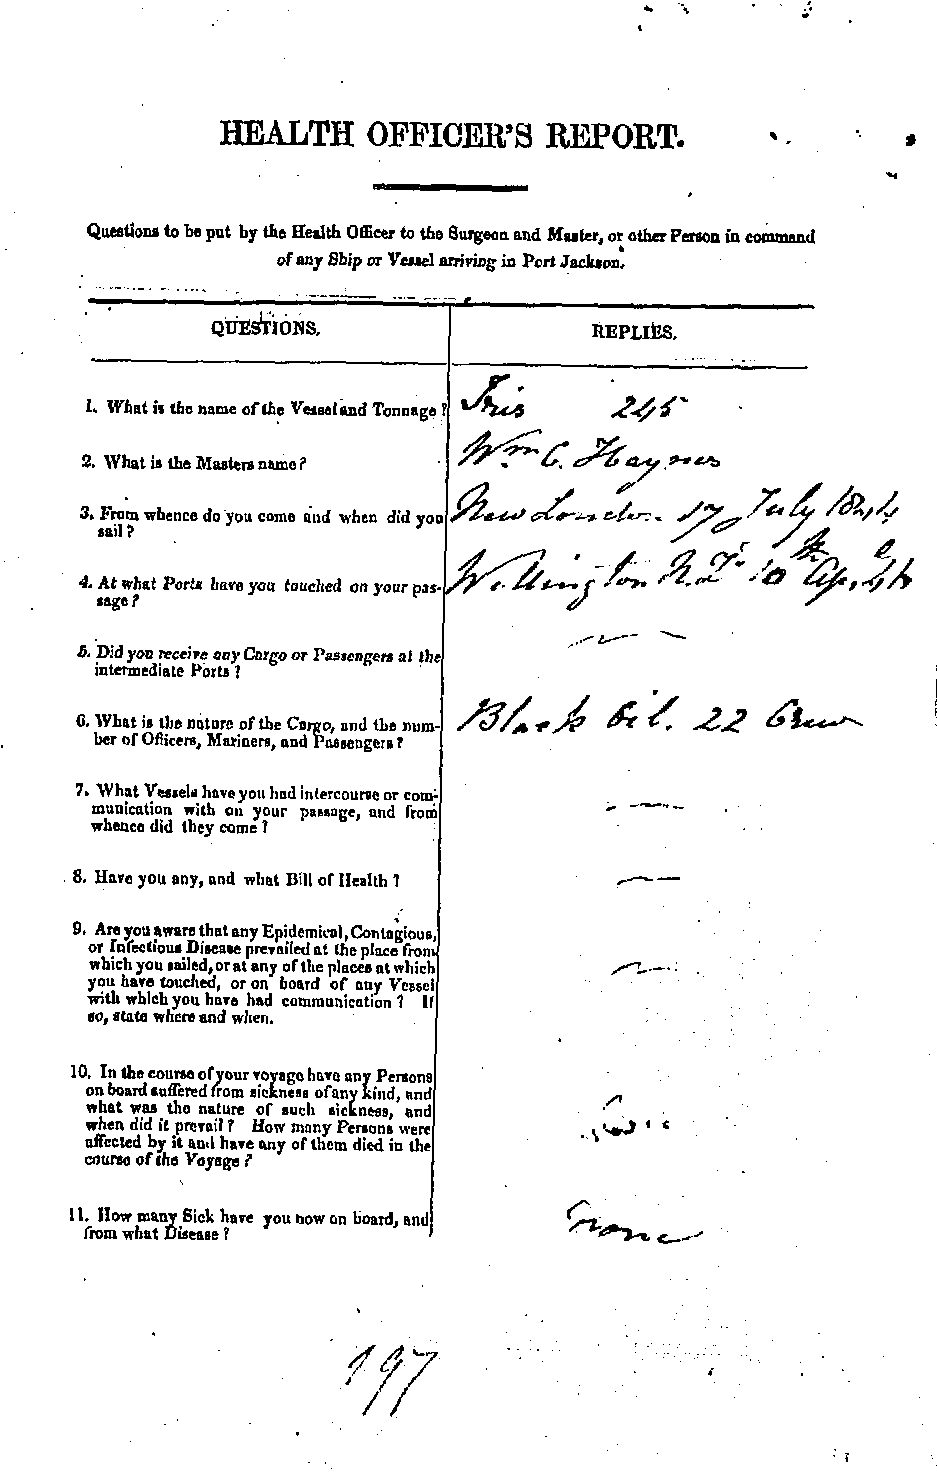 HEALTH OFFICER'S REPORT.
Questions to be put by the Health Officer to the Surgeon and Master, or other Person in command
of any Ship or Vessel arriving in Port Jackson.
QUESTIONS. REPLIES.
1. What is the name of the Vessel and Tonnage? Iris 245
2. What is the Masters name? Wm C. Haynes
3. From whence do you come and when did you New London 17 July 1844
sail?
4. At what Ports have you touched on your pas- Wellington N.Z. 10th Apl 46
sage?
5. Did you receive any Cargo or Passengers at the
intermediate Ports?
6. What is the nature of the Cargo, and the num- Black Oil. 22 Crew
ber of Officers, Mariners, and Passengers?
7. What Vessels have you had intercourse or com-
munication with on your passage, and from
whence did they come?
8. Have you any, and what Bill of Health?
9. Are you aware that any Epidemical, Contagious,
or Infectious Disease prevailed at the place from
which you sailed, or at any of the places at which
you have touched, or on board of any Vessel
with which you have had communication? If
so, state where and when.
10. In the course of your voyage have any Persons
on board suffered from sickness of any kind, and
what was the nature of such sickness, and
when did it prevail? How many Persons were
affected by it and have any of them died in the
course of the Voyage?
11. How many Sick have you now on board, and None
from what Disease?
197